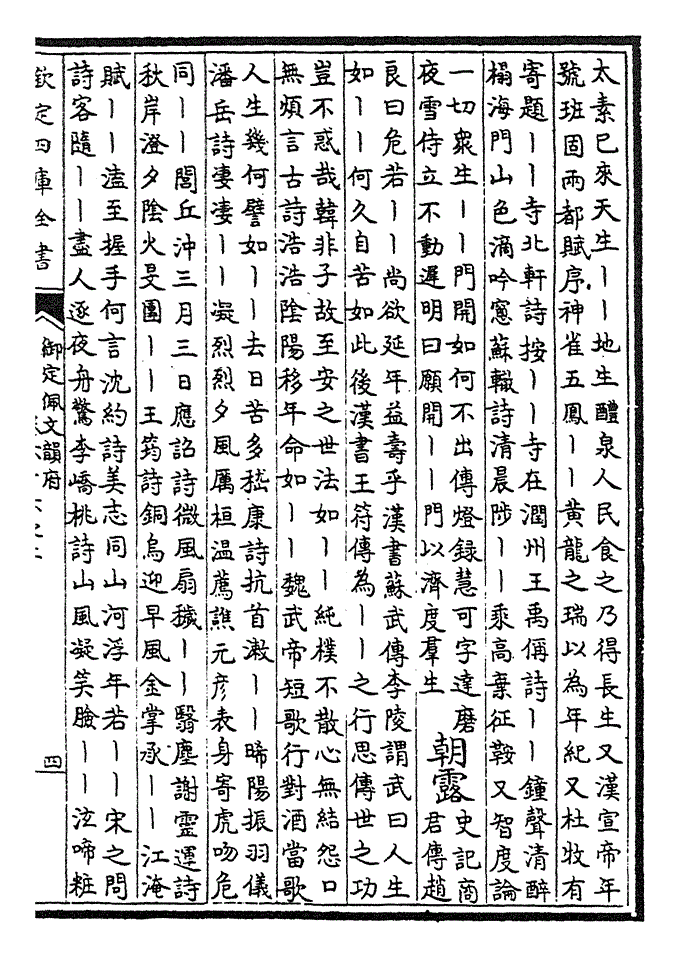 太素已來天生丨丨地生醴泉人民食之乃得長生又漢宣帝年
號班固兩都賦序神雀五鳳丨丨黄龍之瑞以為年紀又杜牧有
寄題丨丨寺北軒詩按丨丨寺在潤州王禹偁詩丨丨鐘聲清醉
榻海門山色滴吟窻蘇轍詩清晨陟丨丨乘高棄征鞍又智度論
一切衆生丨丨門開如何不出傳燈錄慧可字達磨
夜雪侍立不動遲明曰願開丨丨門以濟度羣生
朝露
史記商
君傳趙
良曰危若丨丨尚欲延年益壽乎漢書蘇武傳李陵謂武曰人生
如丨丨何久自苦如此後漢書王符傳為丨丨之行思傳世之功
豈不惑哉韓非子故至安之世法如丨丨純樸不散心無結怨口
無煩言古詩浩浩陰陽移年命如丨丨魏武帝短歌行對酒當歌
人生幾何譬如丨丨去日苦多嵇康詩抗首漱丨丨晞陽振羽儀
潘岳詩凄凄丨丨凝烈烈夕風厲桓温薦譙元彦表身寄虎吻危
同丨丨閭丘沖三月三日應詔詩微風扇穢丨丨翳塵謝靈運詩
秋岸澄夕陰火旻團丨丨王筠詩銅烏迎早風金掌承丨丨江淹
賦丨丨溘至握手何言沈約詩美志同山河浮年若丨丨宋之問
詩客隨丨丨盡人逐夜舟驚李嶠桃詩山風凝笑臉丨丨泫啼粧
欽定四庫全書
御定佩文韻府
四